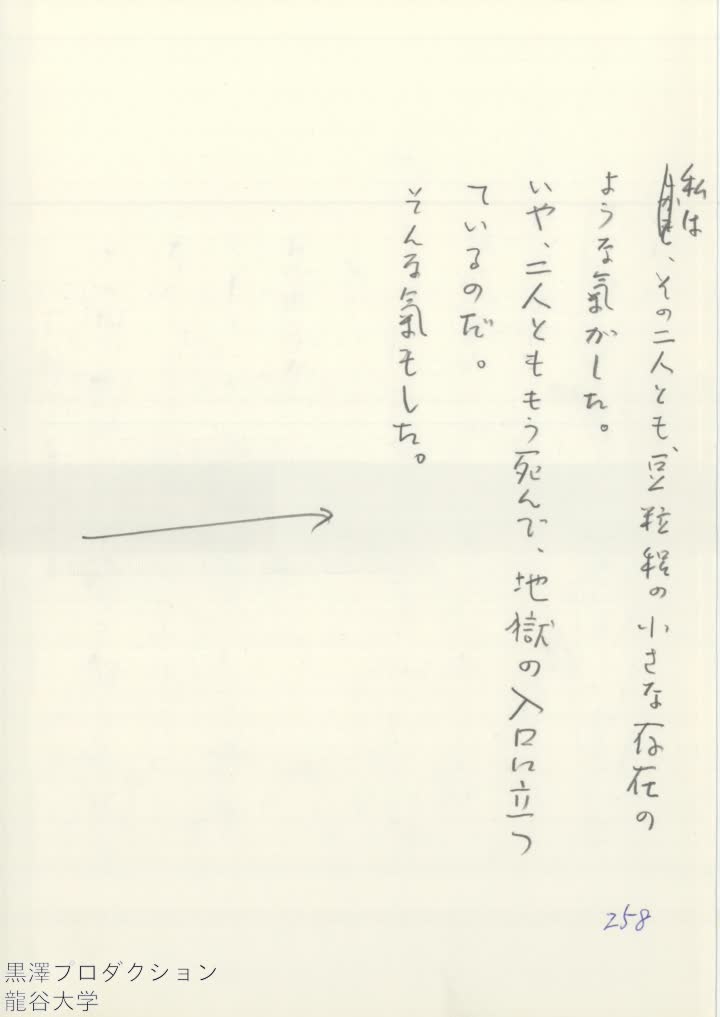 私は
、その二人とも、豆粒程の小さな存在の
ような氣がした。
いや、二人とももう死んで、地獄の入口に立つ
ているのだ。
そんな氣もした。
258
黒澤プロダクション
龍谷大学